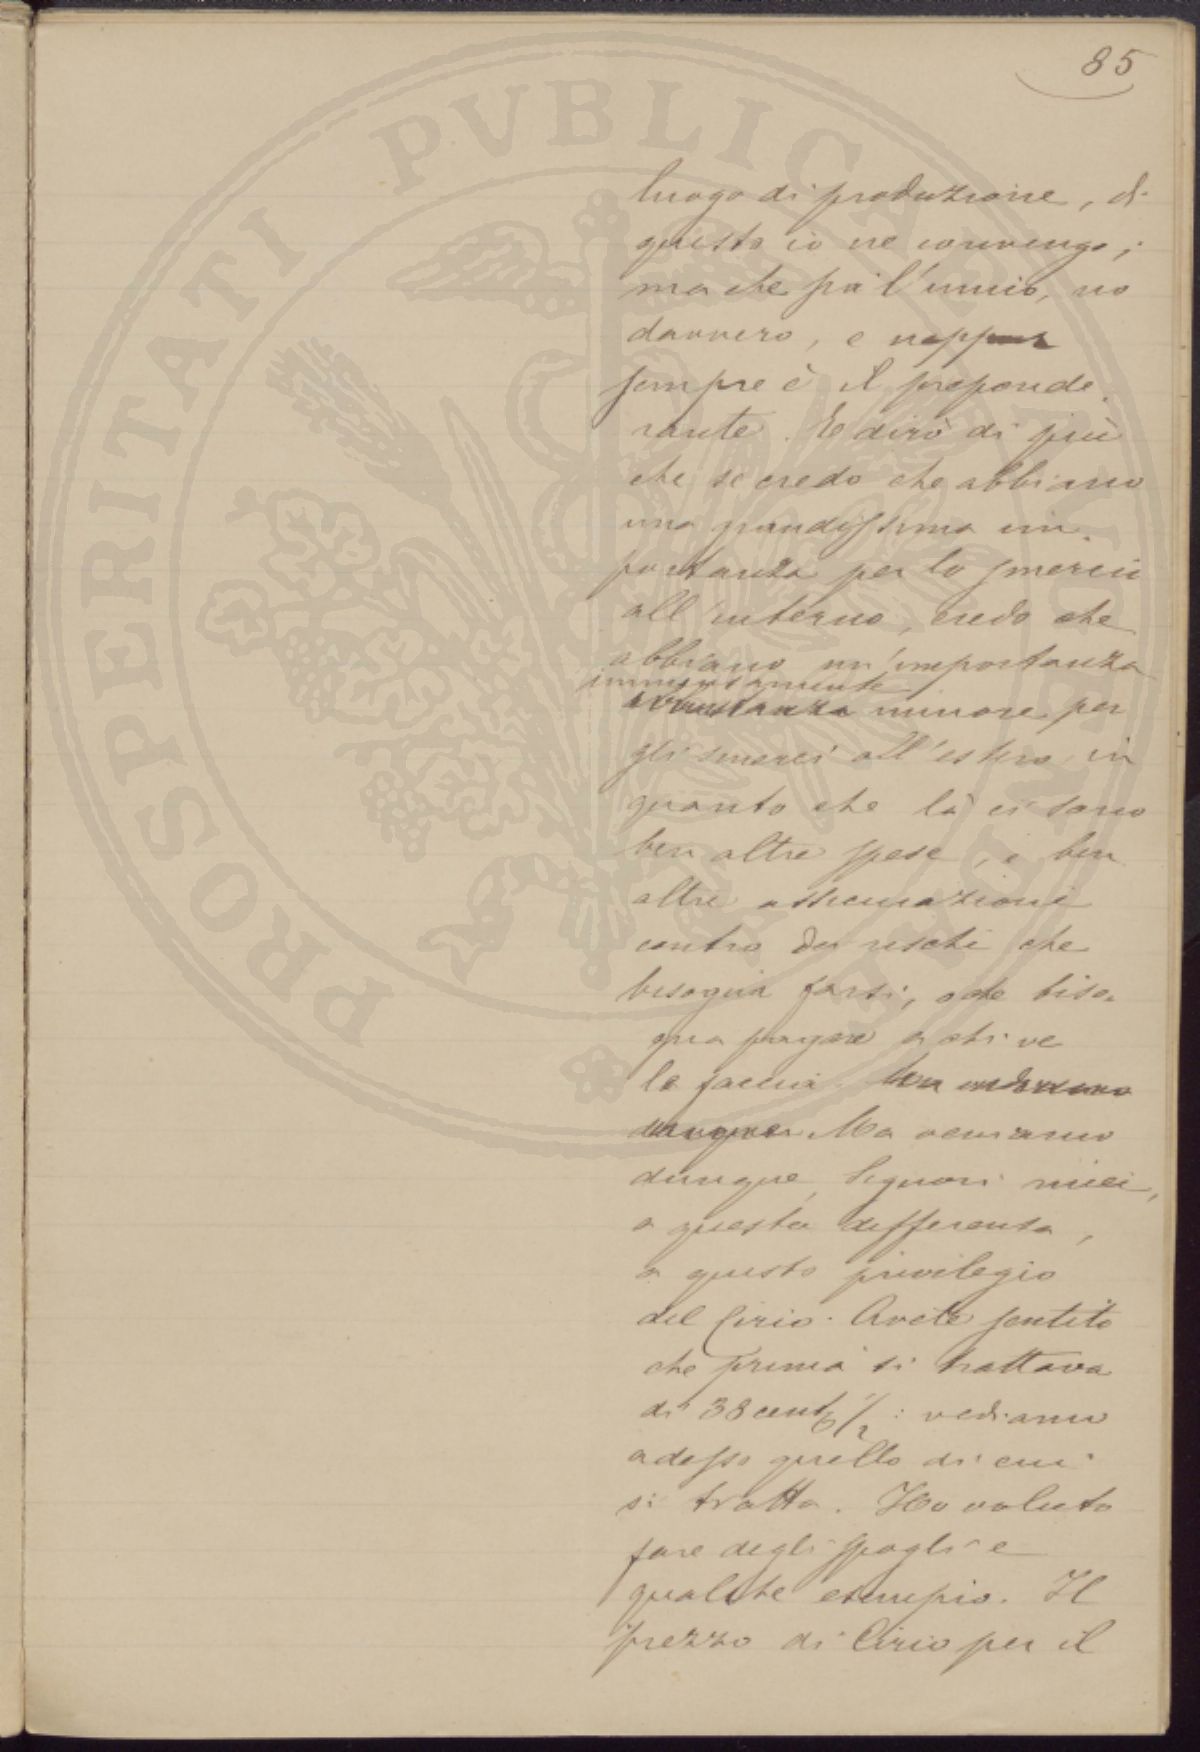 85
luogo di produzione, di
questo io ne convengo;
ma che sia l'unico, no
davvero, e neppur
sempre è il preponde-
rante. E dirò di più
che se credo che abbiano
una grandissima im-
portanza per lo smercio
all'interno, credo che
abbiano un'importanza
immensamente
minore per
gli smerci all'estero, in
quanto che là ci sono
ben altre spese, e ben
altre assicurazioni
contro dei rischi che
bisogna farsi, o che biso-
gna pagare a chi ve
le faccia.
Ma veniamo
dunque, Signori miei,
a questa differenza,
a questo privilegio
del Cirio. Avete sentito
che prima si trattava
di 38 cent 1/2: vediamo
adesso quello di cui
si tratta. Ho voluto
fare degli spogli e
qualche esempio. Il
prezzo di Cirio per il
PROSPERITATI PVBLICAE